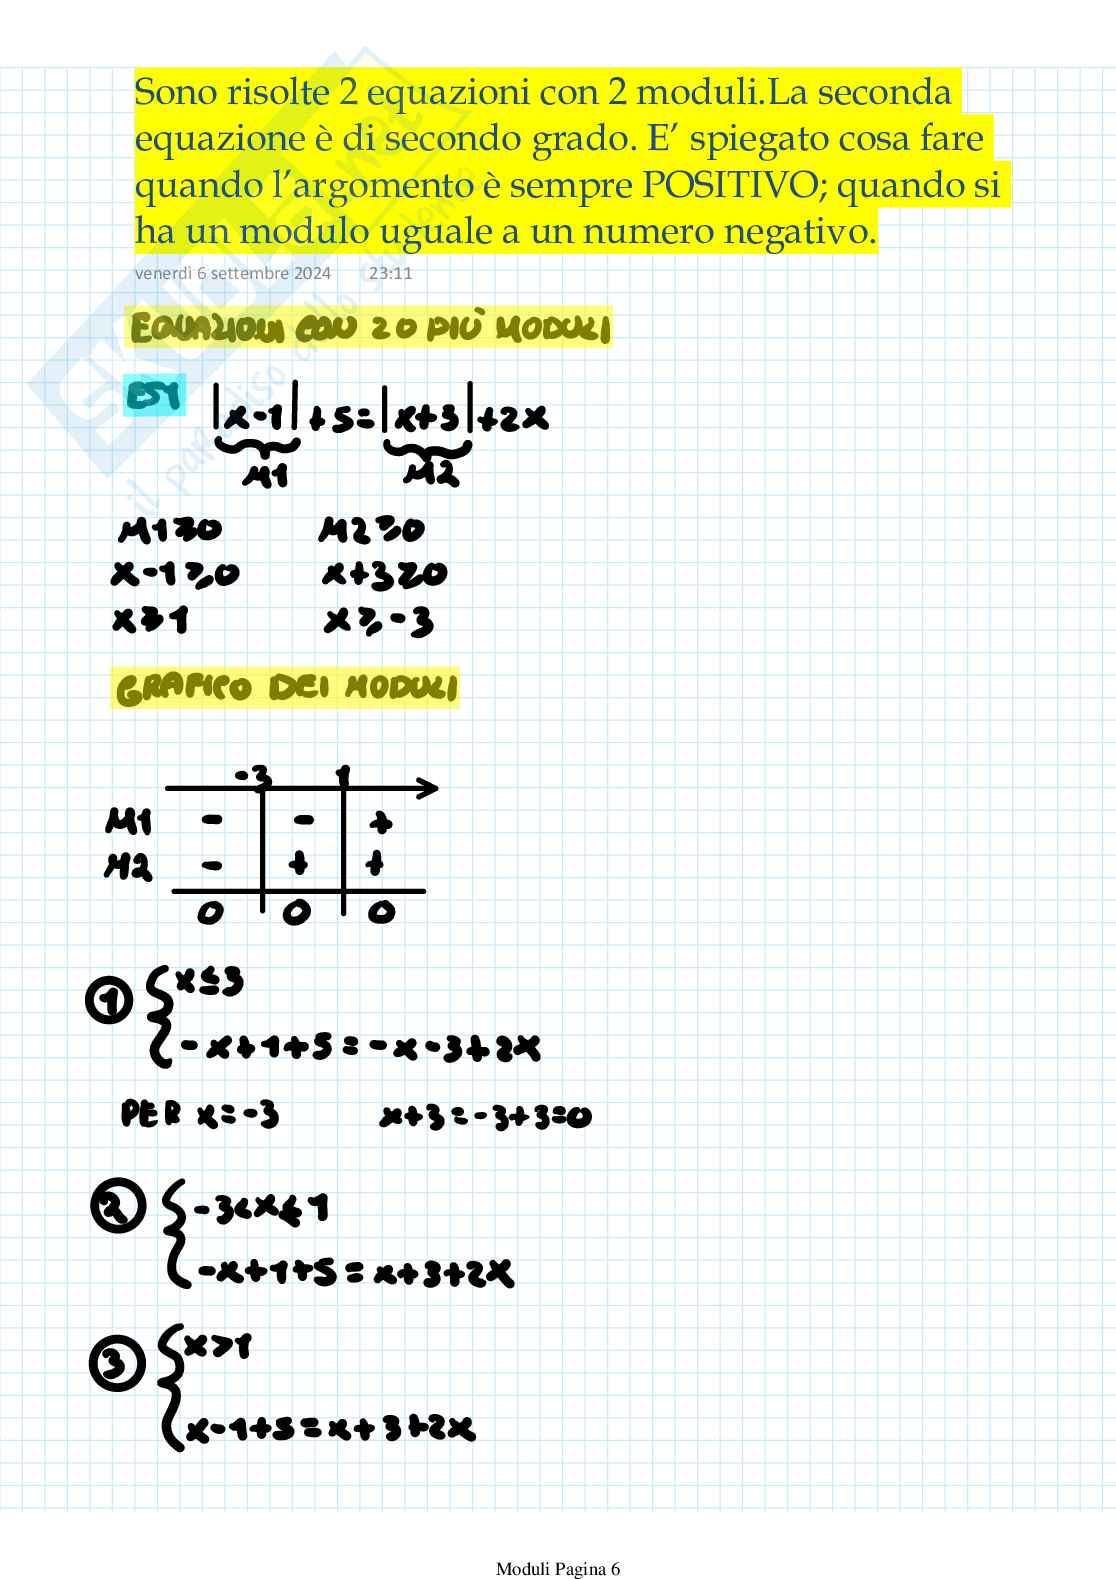 Sono risolte 2 equazioni con 2 moduli.La seconda
equazione è di secondo grado. E’ spiegato cosa fare
quando l’argomento è sempre POSITIVO; quando si
ha un modulo uguale a un numero negativo.
venerdì 6 settembre 2024 23:11
EQUAZIONI CON 2 O PIÙ MODULI
ES1 |x-1|+5=|x+3|+2x
M1 M2
M1≥0 M2≥0
x-1≥0 x+3≥0
x≥1 x≥-3
GRAFICO DEI MODULI
-3 1
M1 - - +
M2 - + +
0 0 0
1 { x≤3
-x+1+5=-x-3+2x
PER x=-3 x+3=-3+3=0
2 { -3<x≤1
-x+1+5=x+3+2x
3 { x>1
x-1+5=x+3+2x
Moduli Pagina 6
SKUOLA.net
il paradiso dello studente